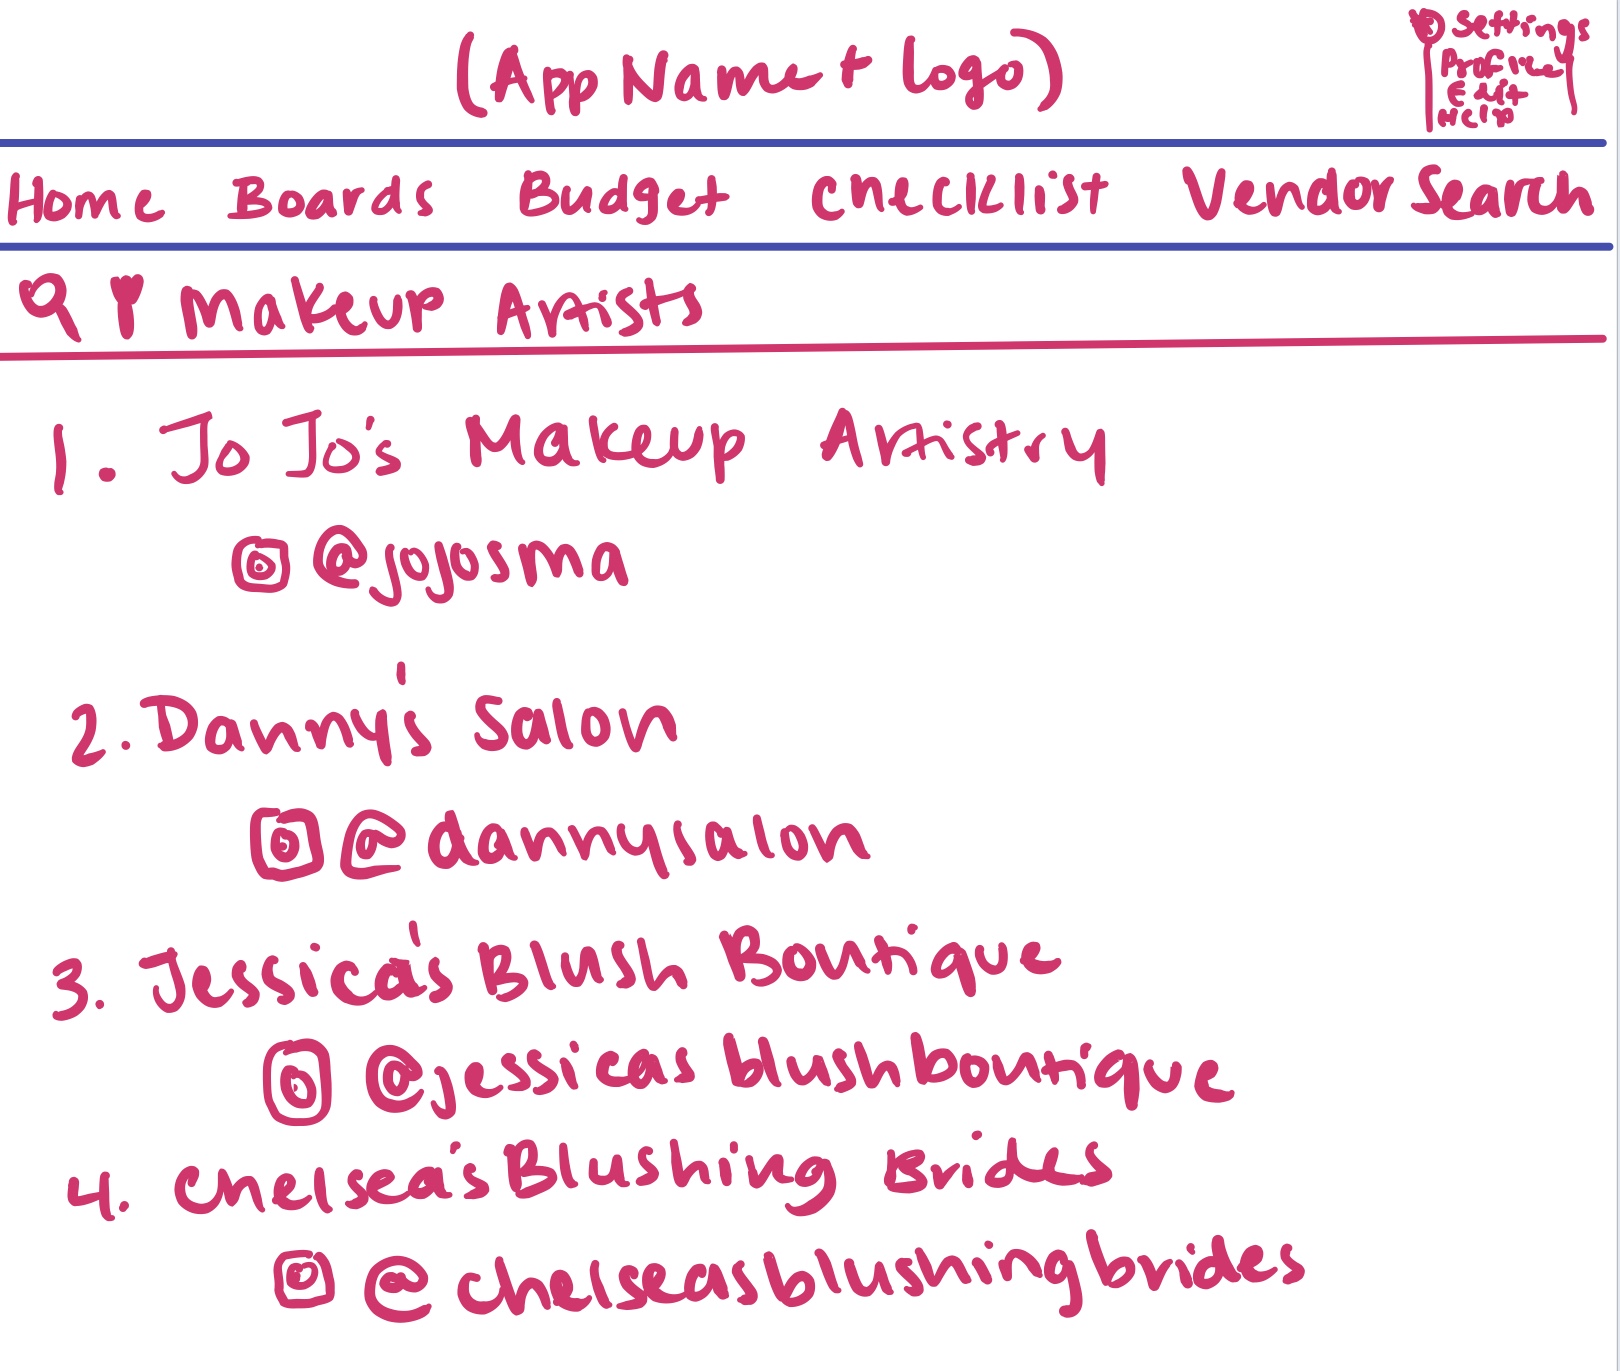 (App Name + Logo)
Settings
Profile
Edit
Help
Home Boards Budget Checklist Vendor Search
Makeup Artists
1. Jo Jo's Makeup Artistry
@jojosma
2. Danny's Salon
@dannysalon
3. Jessica's Blush Boutique
@jessicasblushboutique
4. Chelsea's Blushing Brides
@chelseasblushingbrides